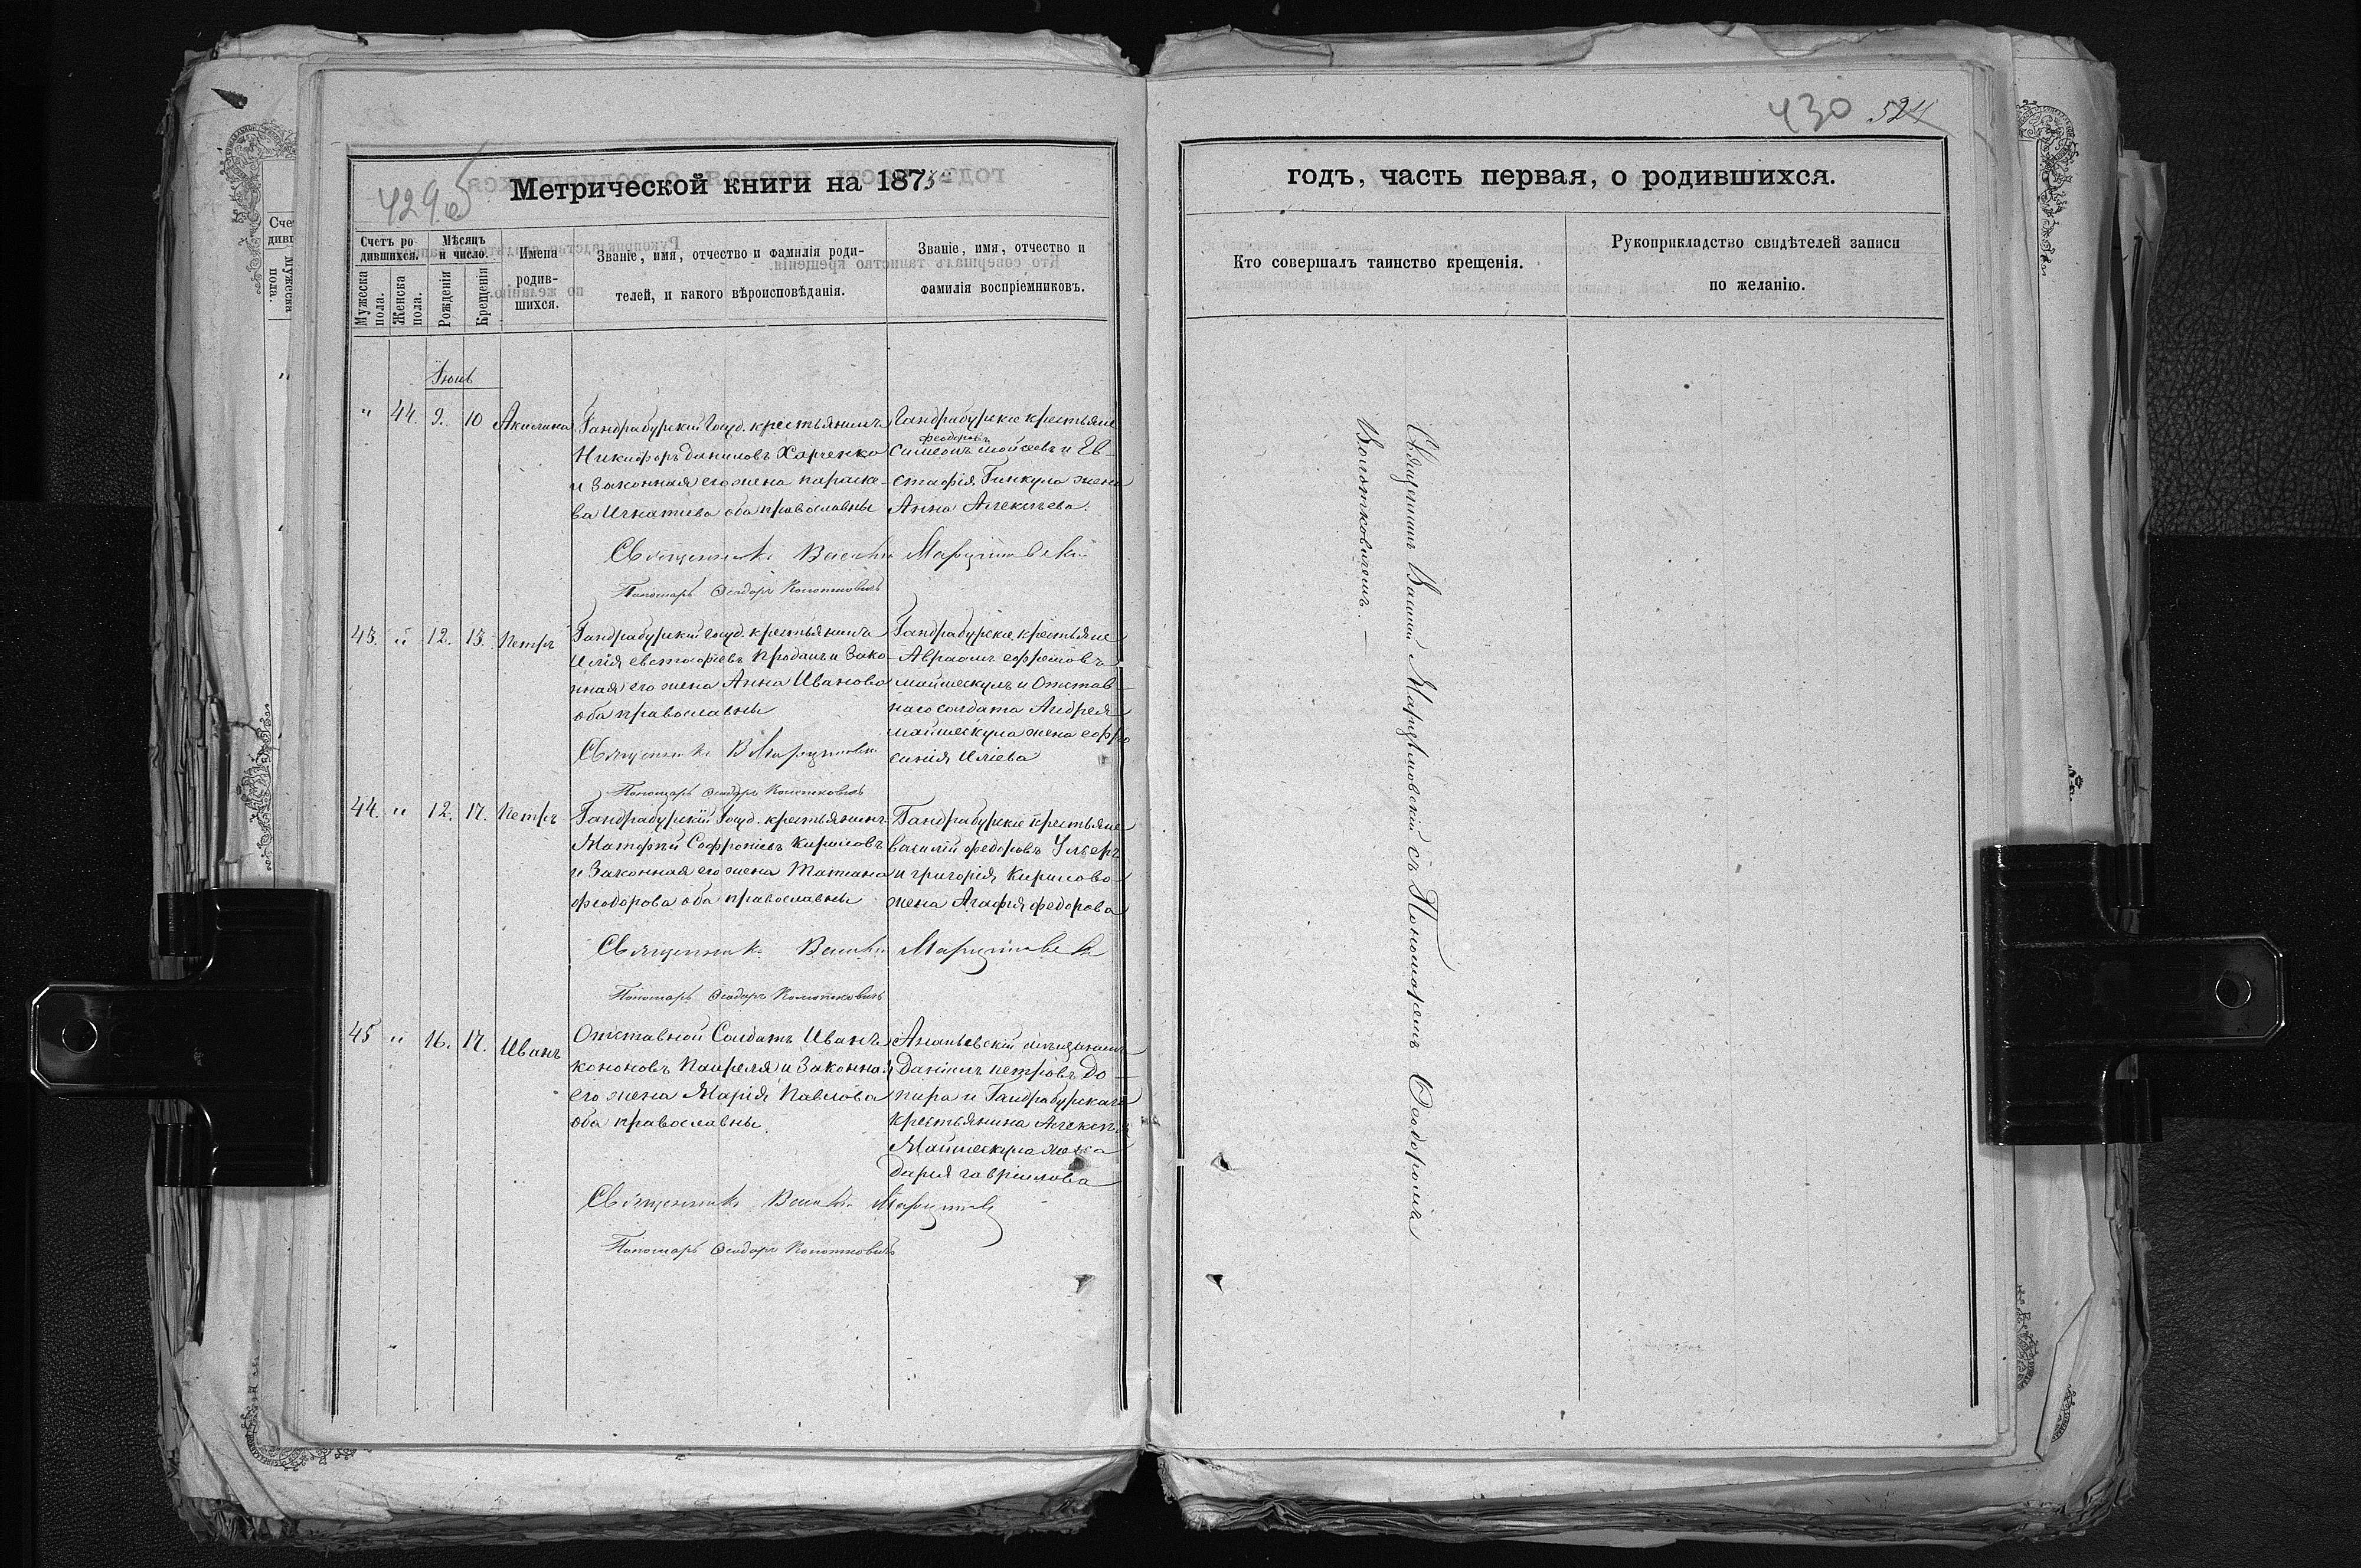 429 об
Метрической книги на 1875
Счетъ ро-
дившихся.
Мужеска пола.
Женска пола.
Мѣсяцъ
и число.
Рожденія
Крещенія
Имена
родив-
шихся.
Званіе, имя, отчество и фамилія роди-
телей, и какого вѣроисповѣданія.
Званіе, имя, отчество и
фамилія воспріемниковъ.
Іюнь
" 44. 9. 10 Акилина
Гандрабурскій Госуд. крестьянинъ
Никифоръ даниловъ Харченко
и Законная его жена параске-
ва Игнатиева оба православны
Гандрабурскіе крестьяне
феодоровъ
Симеонъ мойсеевъ и Ев-
стафія Гинкула жена
Анна Алексѣева.
Священникъ Василій Марцишевскій
Пономарь Ѳеодоръ Колотковичъ
43. " 12. 13. Петръ
Гандрабурскій Госуд. крестьянинъ
Илія евстафіевъ Проданъ и Зако-
нная его жена Анна Иванова
оба православны
Гандрабурскіе крестьяне
Авраамъ ефремовъ
маймескулъ и Отстав-
наго солдата Андрея
маймескула жена ефро
синія Иліева
Священникъ В Марцишевскій
Пономарь Ѳеодоръ Колотковичъ
44. " 12. 17. Петръ
Гандрабурскій Госуд. крестьянинъ
Матофѣй Софроніевъ Кириловъ
и Законная его жена Татиана
феодорова оба православны
Гандрабурскіе крестьяне
василій федоровъ
и григорія Кирилова
жена Агафія федорова
Священникъ Василій Марцишевскій
Пономарь Ѳеодоръ Колотковичъ
45 " 16. 17. Иванъ
Отставной Солдатъ Иванъ
кононовъ и Законная
его жена Марія Павлова
оба православны.
Ананьевскій мѣщанинъ
Даніилъ петровъ До-
пира и Гандрабурскаго
крестьянина Алексѣя
Маймескула жена
дарія гавриилова
Священникъ Василій
Пономарь Ѳеодоръ Колотковичъ
430 524
годъ, часть первая, о родившихся.
Кто совершалъ таинство крещенія.
Рукоприкладство свидѣтелей записи
по желанію.
Священникъ Василій Марцишовскій съ Пономаремъ Ѳеодоромъ
Колотковичемъ.